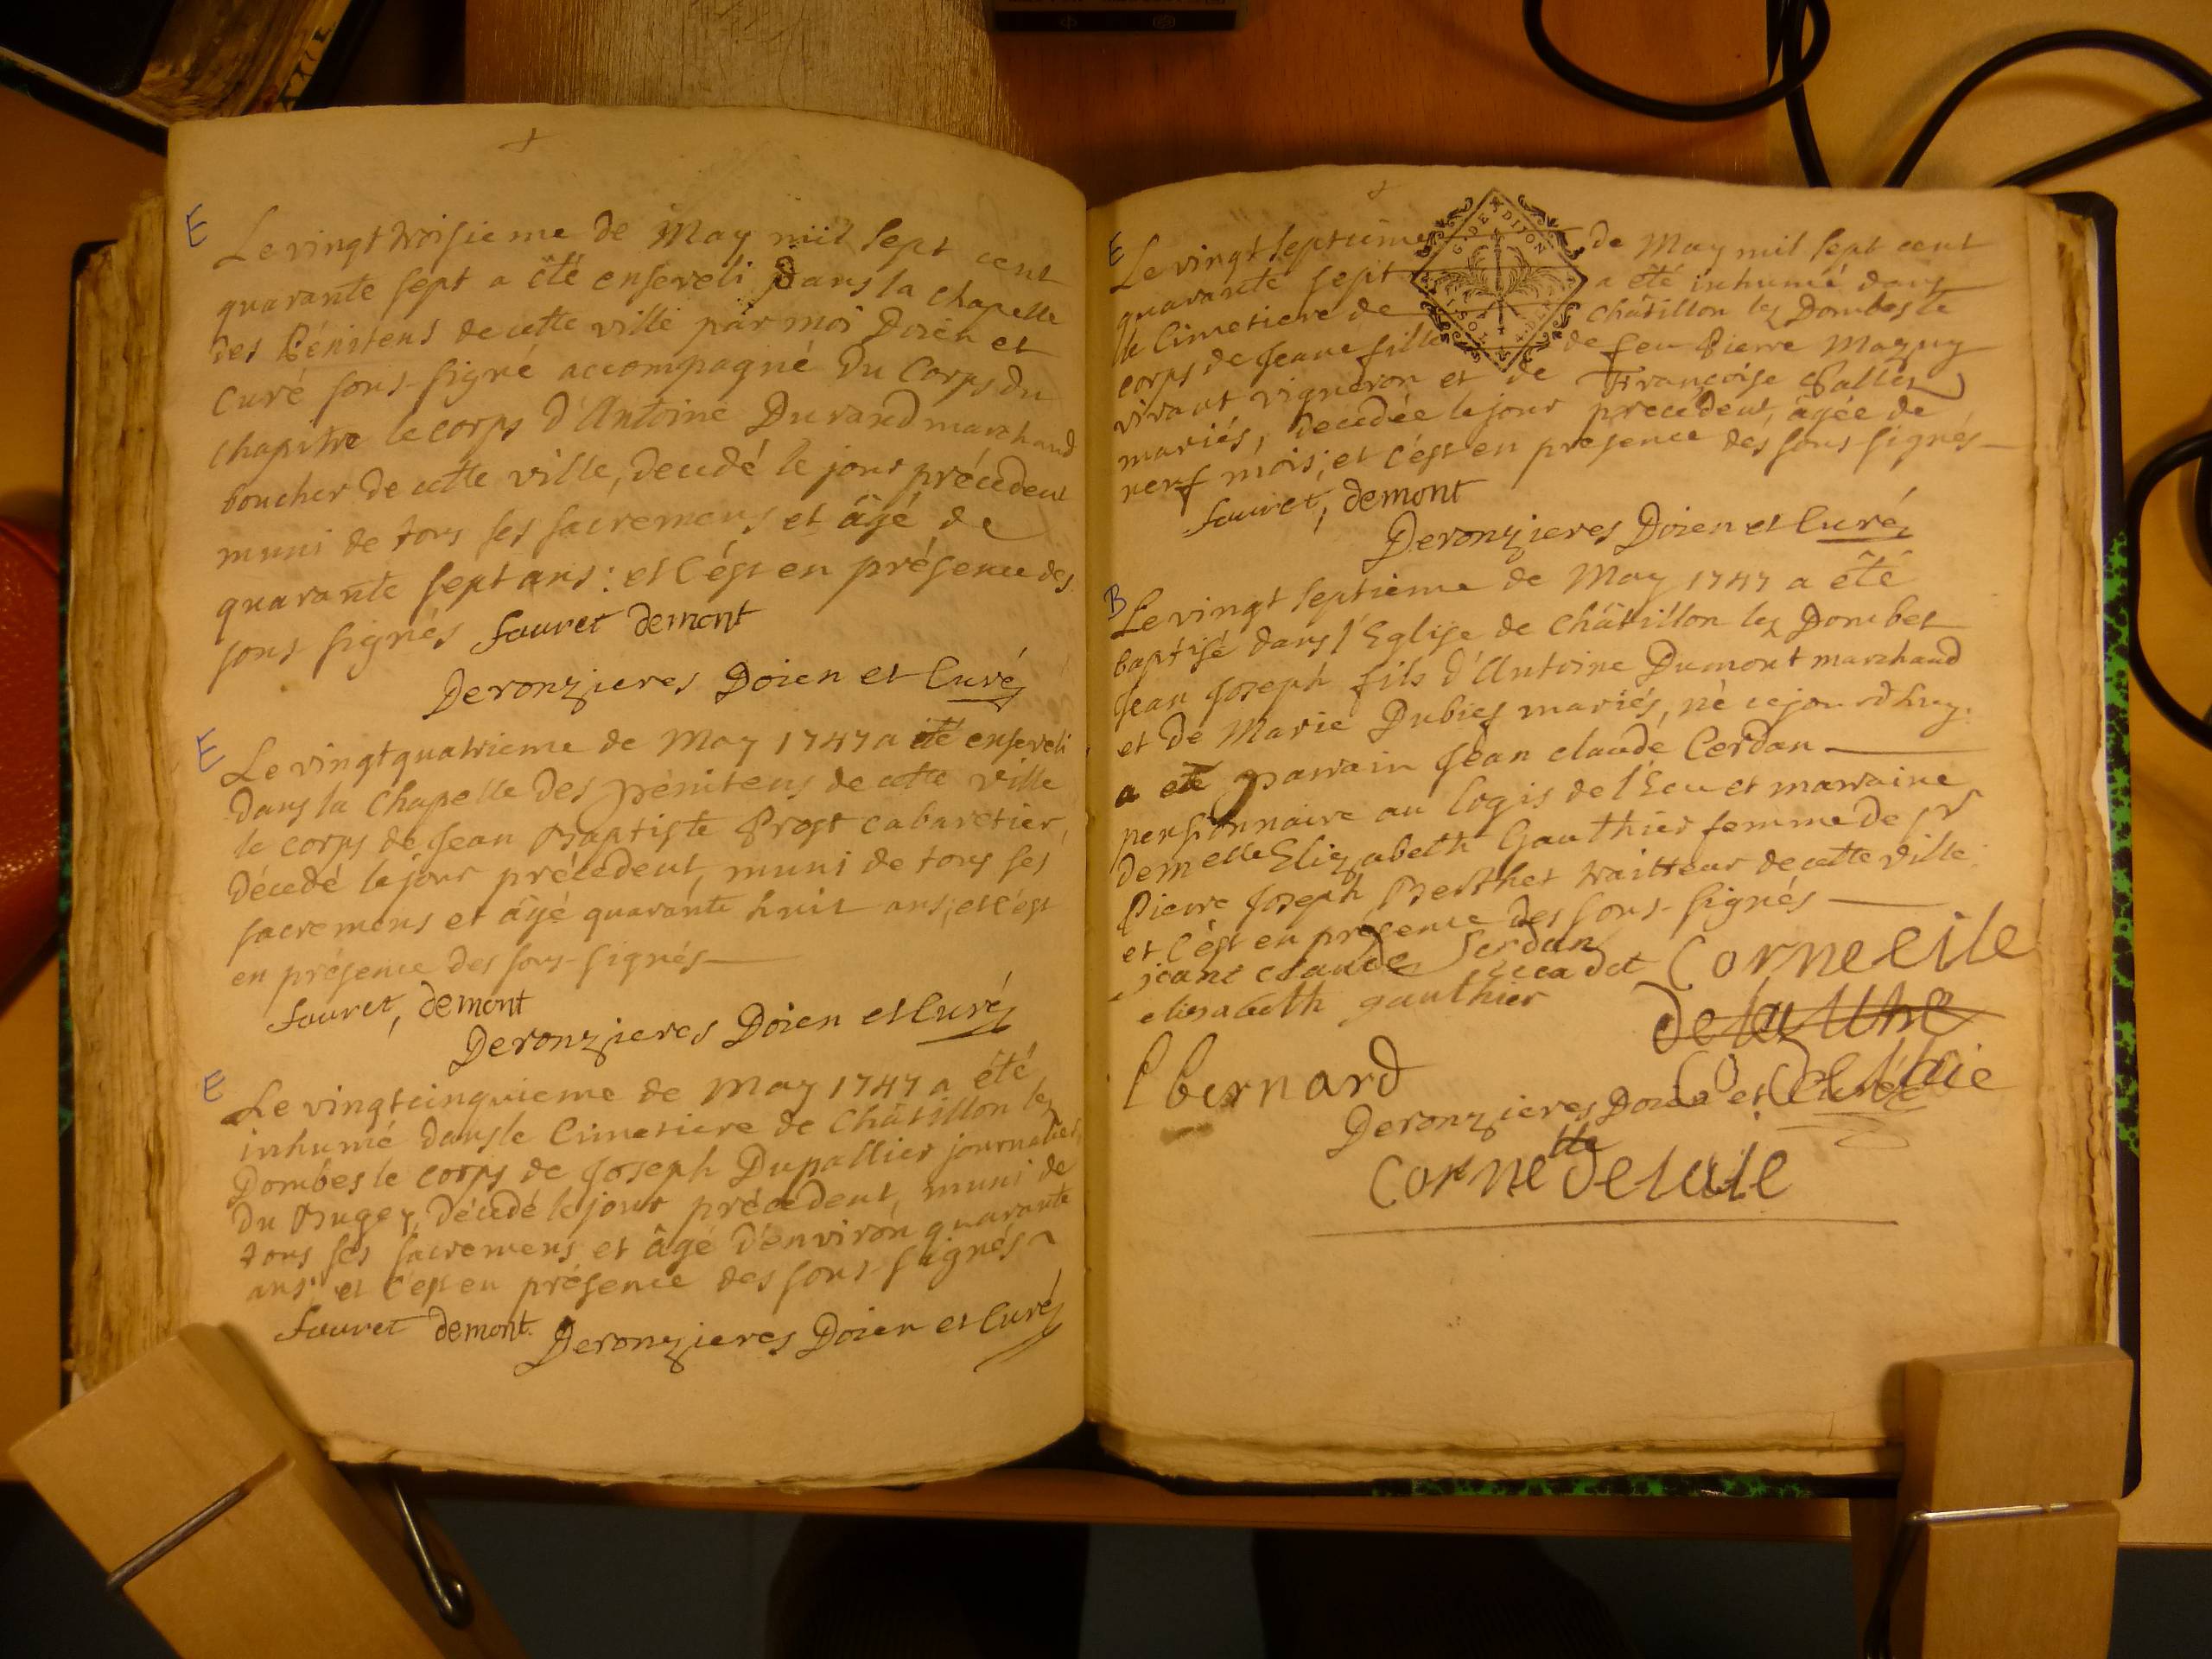 E
Le vingt troisieme de May mil sept cent
quarante sept a été enseveli Dans la chapelle
des Pénitens de cette ville par moi Doien et
Curé sous-signé accompagné Du Corps du
chapitre le corps d'Antoine Durand marchand
boucher de cette ville, decedé le jour précédent
muni de tous ses sacremens et âgé de
quarante sept ans: et c'ést en présence des
sous signés fauret demont
Deronzieres Doien et Curé
E
Le vingt quatrieme de May 1747 a été enseveli
dans la Chapelle des pénitens de cette ville
le corps de Jean Baptiste Prost cabaretier,
décedé le jour précedent, muni de tous ses
sacremens et âgé quarante huit ans; et c'ést
en présence des sous-signés
fauret, demont
Deronzieres Doien et Curé
E
Le vingt cinquieme de May 1747 a été
inhumé dans le Cimetiere de Châtillon lez
Dombes le corps de Joseph Dupallier journalier
du Bugey, décedé le jour précedent, muni de
tous ses sacremens et âgé d'environ quarante
ans; et c'ést en présence des sous-signés
fauret demont. Deronzieres Doien et Curé
E
Le vingt septieme de May mil sept cent
quarante sept a été inhumé dans
le Cimetiere de châtillon lez Dombes le
corps de Jeane fille de feu Pierre Maguy
vivant vigneron et de Françoise Pallex
mariés, decédée le jour precédent, âgée de
neuf mois; et c'ést en présence des sous-signés
fauret, demont
Deronzieres Doien et Curé
G. DE DIJON
B
Le vingt septieme de May 1747 a été
baptisé dans l'Eglise de Châtillon lez Dombes
Jean Joseph fils d'Antoine Dumont marchand
et de Marie Dubief mariés, né cejourdhuy.
a été parrain Jean claude Cerdan
pensionnaire au logis de l'Ecu et marraine
demelle Elizabeth Gauthier femme de sr
Pierre Joseph Berthet traitteur de cette ville
et c'ést en présence des sous-signés
jeant claude Serdan Corneeile
elisabeth gauthier
C bernard
Deronzieres Doien et Curé
Corne delaie